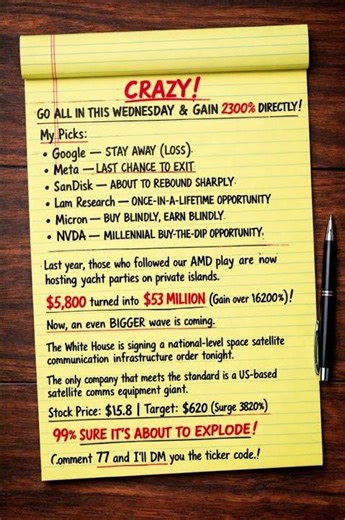 CRAZY!
GO ALL IN THIS WEDNESDAY & GAIN 2300% DIRECTLY!
My Picks:
• Google — STAY AWAY (LOSS).
• Meta — LAST CHANCE TO EXIT
• SanDisk — ABOUT TO REBOUND SHARPLY.
• Lam Research — ONCE-IN-A-LIFETIME OPPORTUNITY
• Micron — BUY BLINDLY, EARN BLINDLY.
• NVDA — MILLENNIAL BUY-THE-DIP OPPORTUNITY.
Last year, those who followed our AMD play are now
hosting yacht parties on private islands.
$5,800 turned into $53 MILIION (Gain over 16200%)!
Now, an even BIGGER wave is coming.
The White House is signing a national-level space satellite
communication infrastructure order tonight.
The only company that meets the standard is a US-based
satellite comms equipment giant.
Stock Price: $15.8 | Target: $620 (Surge 3820%)
99% SURE IT'S ABOUT TO EXPLODE!
Comment 77 and I'll DM you the ticker code.!